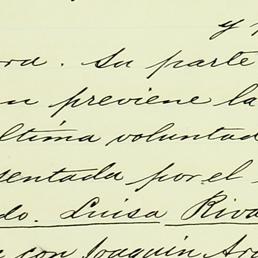 y
ra. Su parte
n previene la
ltima voluntad
sentada por el
do. Luisa Riva
con Joaquin Ar